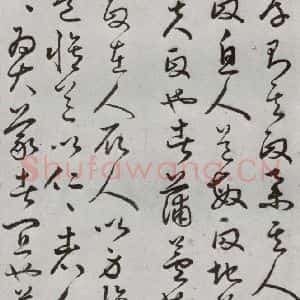 存則其政舉其人
政息人道敏政地
夫政也者蒲蘆也
政在人取人以身修
道修道以仁〻者人
〻為大義者宜也尊
Shufawang.CN